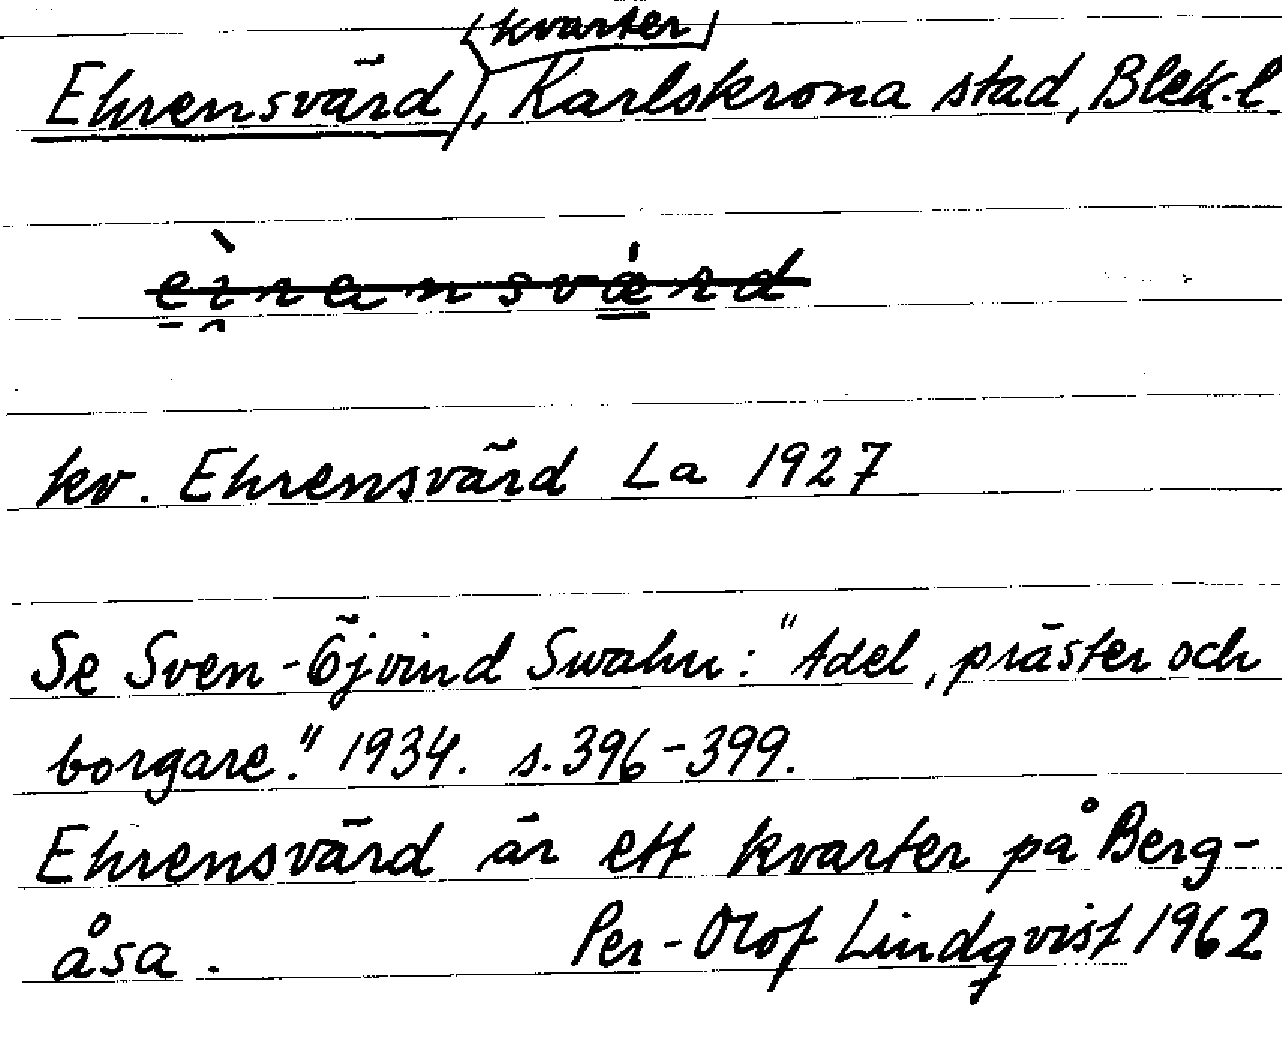 (kvarter)
Ehrensvärd, Karlskrona stad, Blek.l.
kv. Ehrensvärd La 1927
Se Sven-Öjvind Swahn: "Adel, präster och
borgare." 1934. s. 396-399.
Ehrensvärd är ett kvarter på Berg-
åsa. Per-Olof Lindqvist 1962